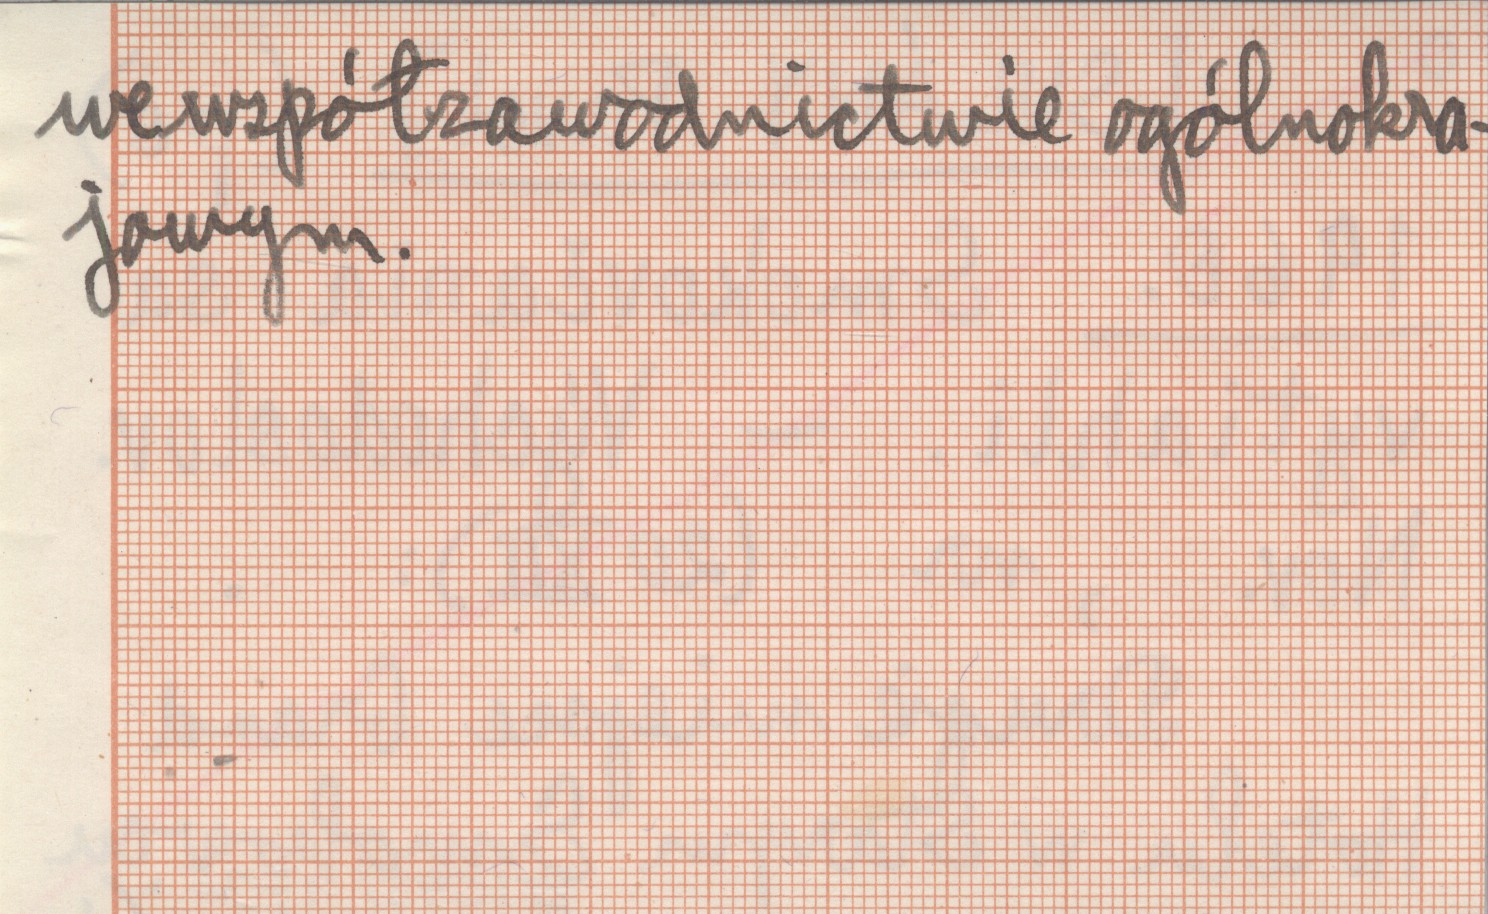 we współzawodnictwie ogólnokra-
jowym.